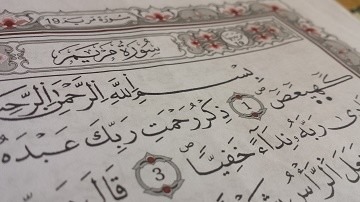 سُورَةُ مَرْيَم 19
سُورَةُ مَرْيَمَ
بِسْمِ اللَّهِ الرَّحْمَٰنِ
كٓهيعٓصٓ 1 ذِكْرُ رَحْمَتِ رَبِّكَ عَبْدَهُ
رَبَّهُ نِدَاءً خَفِيًّا 3 قَالَ
الرَّأْسُ